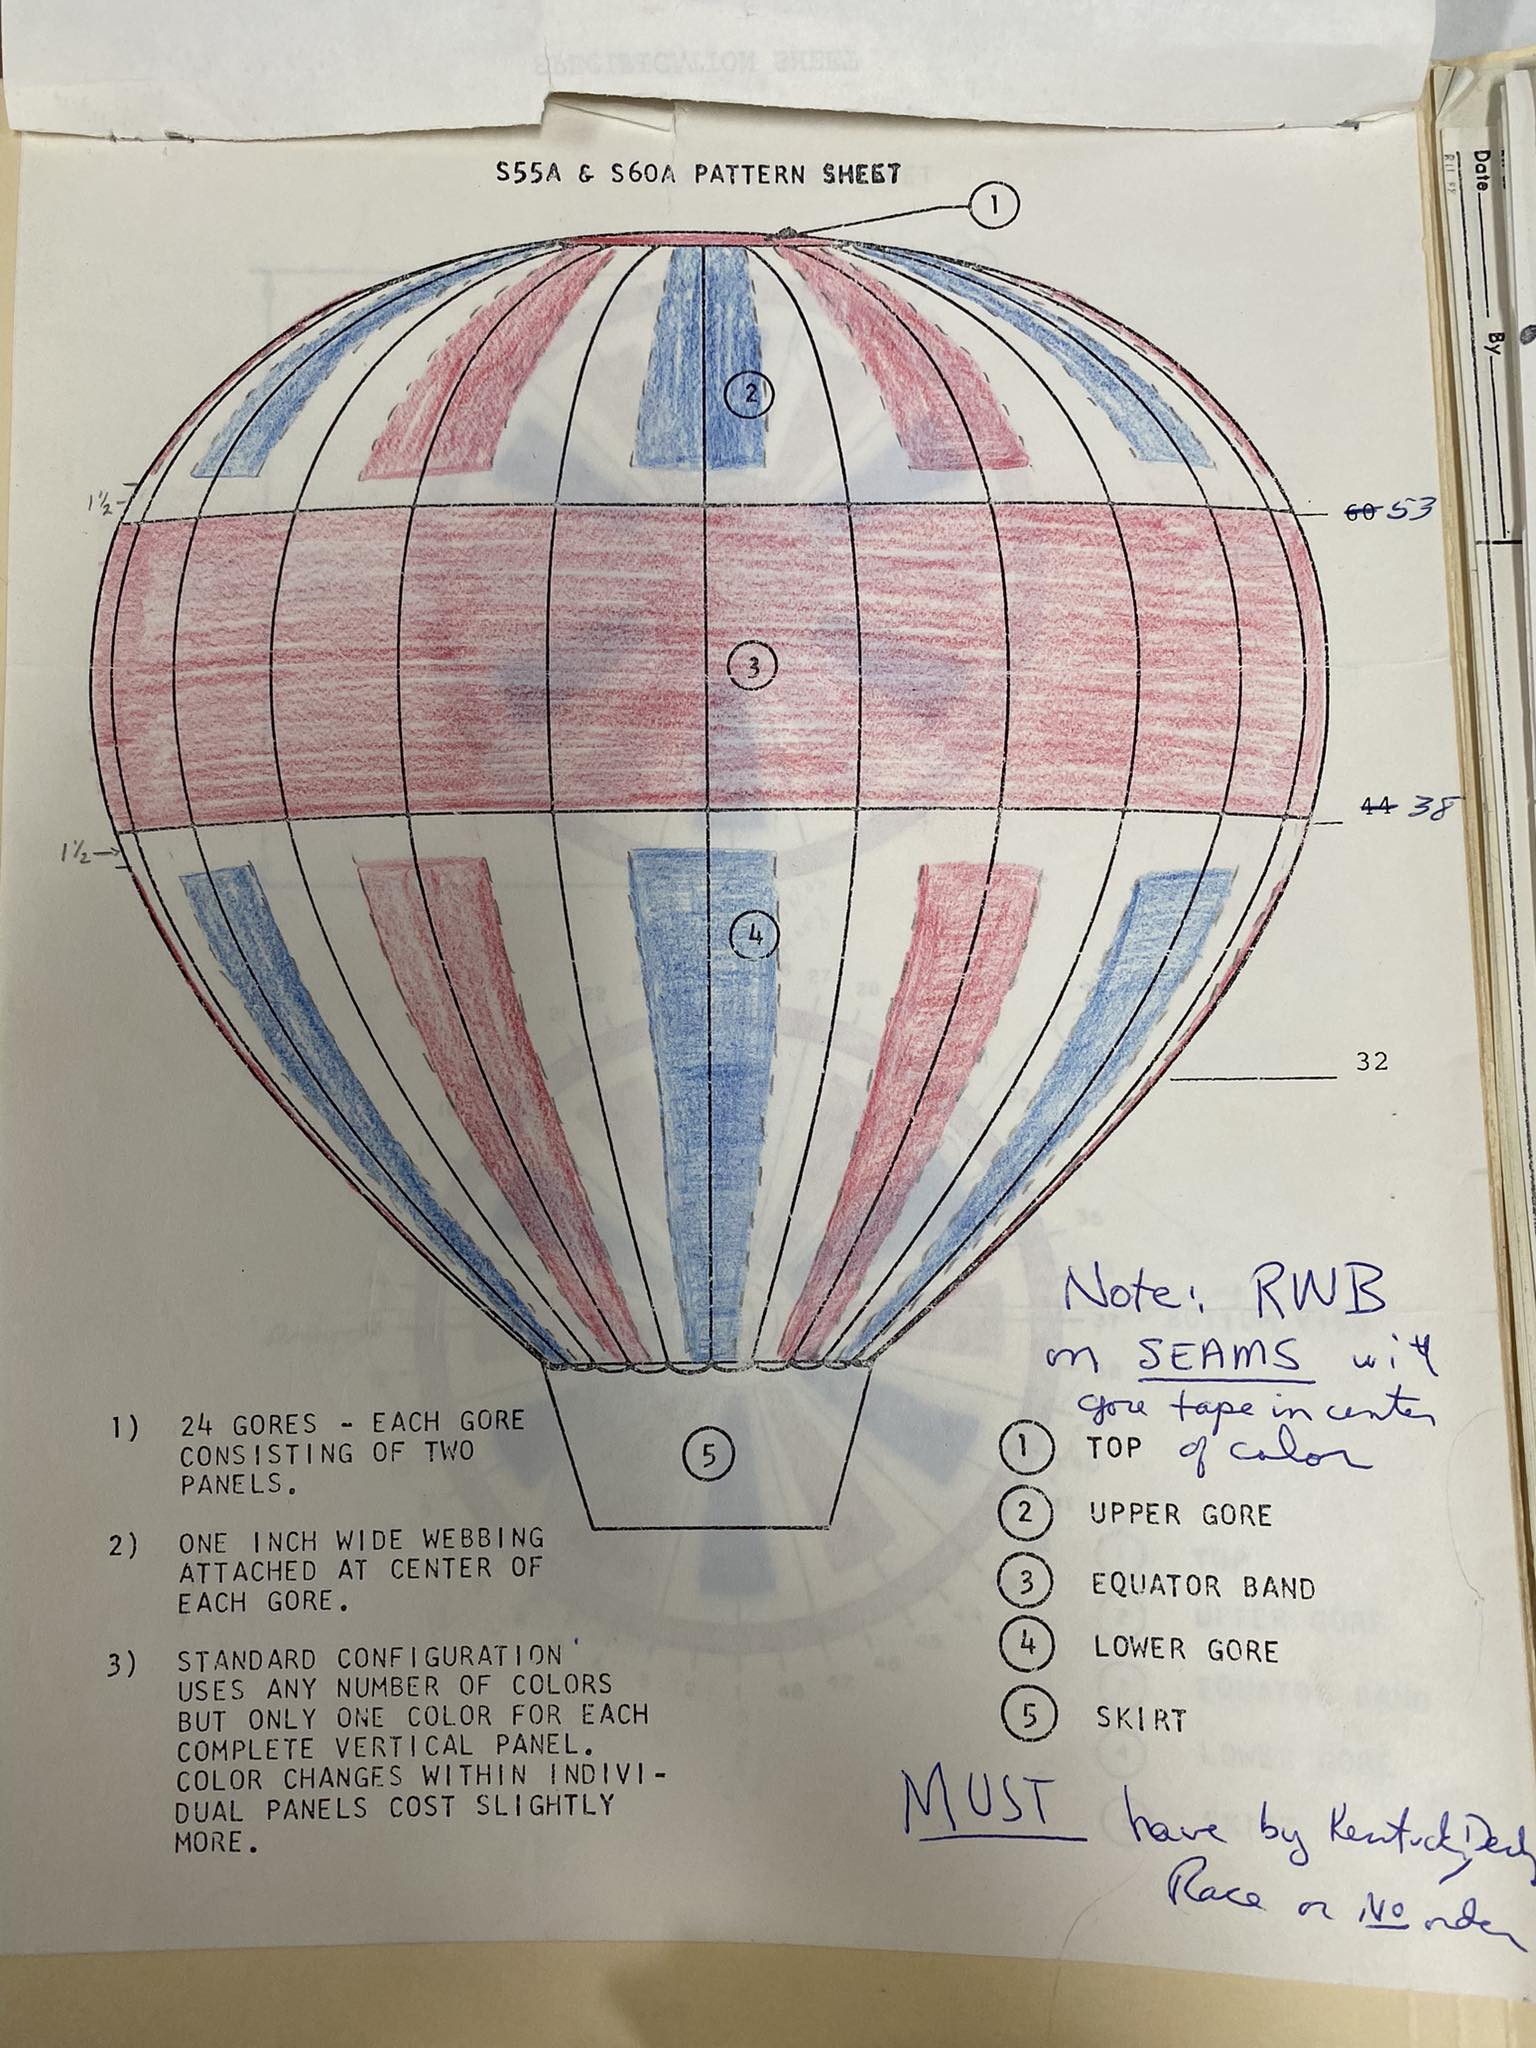 S55A & S60A PATTERN SHEET
1
Date
By
2
1½
60 53
3
44 38
1½
4
32
Note: RWB
on SEAMS with
gore tape in center
of color
5
1) 24 GORES - EACH GORE
CONSISTING OF TWO
PANELS.
2) ONE INCH WIDE WEBBING
ATTACHED AT CENTER OF
EACH GORE.
3) STANDARD CONFIGURATION
USES ANY NUMBER OF COLORS
BUT ONLY ONE COLOR FOR EACH
COMPLETE VERTICAL PANEL.
COLOR CHANGES WITHIN INDIVI-
DUAL PANELS COST SLIGHTLY
MORE.
1 TOP
2 UPPER GORE
3 EQUATOR BAND
4 LOWER GORE
5 SKIRT
MUST have by Kentucky Derby
Race or No order